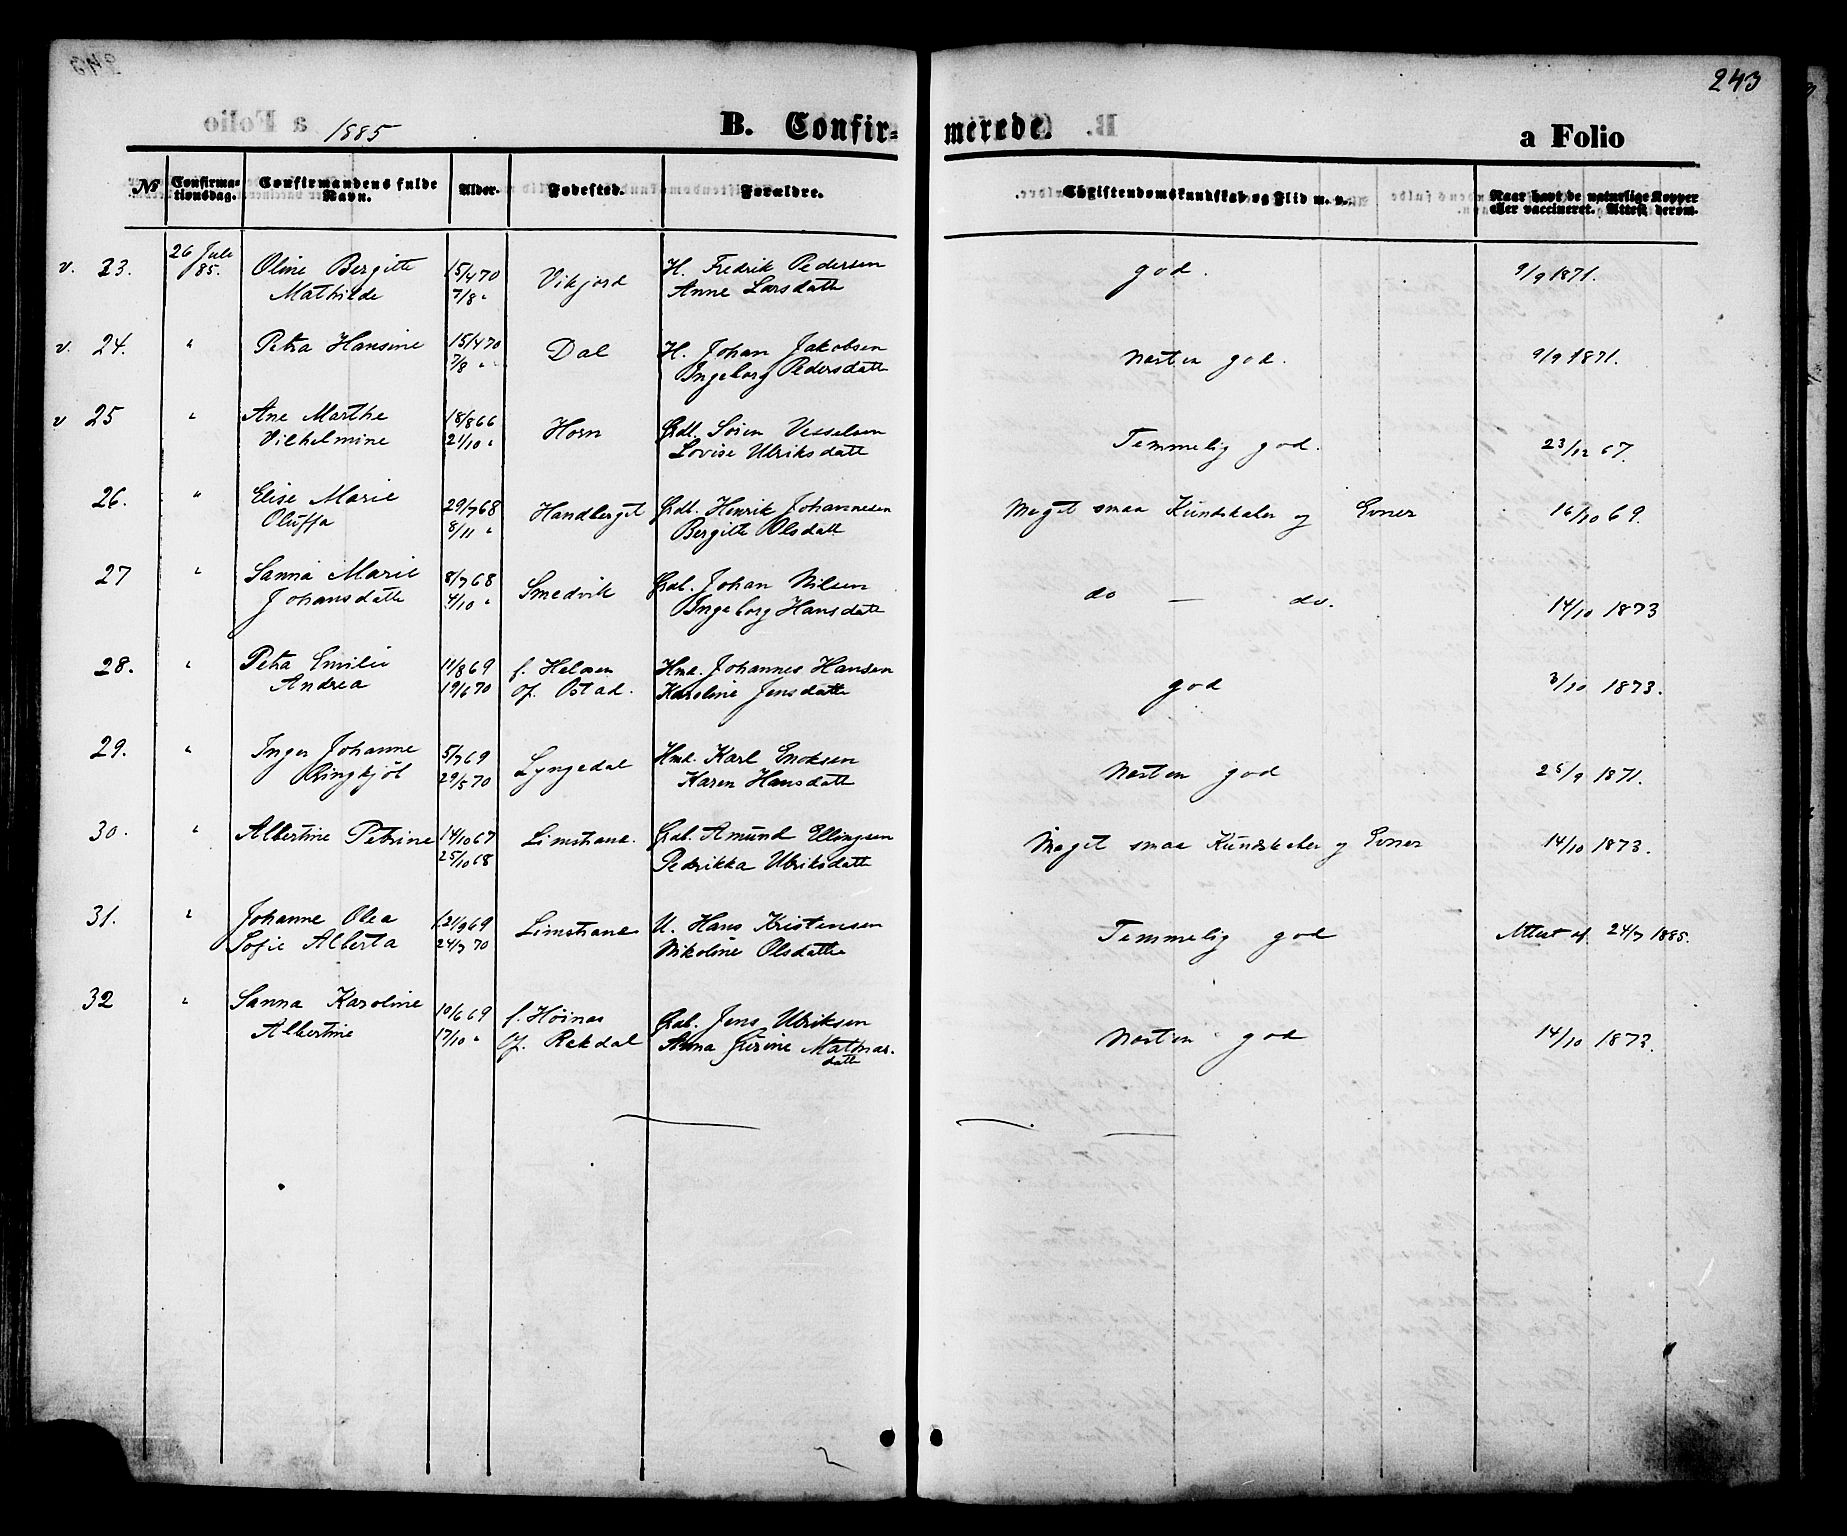 243
1885
B. Confir- merede.
a Folio
№ Confirmationsdag. Confirmandens fulde Navn. Alder. Fødested. Forældre. Christendomskundskab og Flid m. v. Naar havt de naturlige Kopper eller vaccineret. Attest derom.
v. 23. 26 Juli Oline Bergitte 15/4 70 Vikjord H. Fredrik Pedersen god. 9/9 1871.
/85. Mathilde 7/8 " Anne Larsdatt
v. 24. " Petra Hansine 15/4 70 Dal H. Johan Jakobsen Næsten god. 9/9 1871.
7/8 " Ingeborg Pedersdatt
v 25 " Ane Marthe 18/8 66 Horn Grdb. Sören Vesselsen Temmelig god. 23/12 67.
Vilhelmine 21/10 " Lovise Ulriksdatt
26. " Elise Marie 29/7 68 Handberget Grdb. Henrik Johannesen Meget smaa Kundskaber og Evner 16/10 69.
Oluffa 8/11 " Bergitte Olsdatt
27 " Sanna Marie 8/7 68 Smedvik Grdb. Johan Nilsen do — do. 14/10 1873
Johansdatte 4/10 " Ingeborg Hansdatt
28. " Petra Emilie 11/8 69 f. Helosen Hmd. Johannes Hansen god 3/10 1873.
Andrea 19/6 70 Of. Ostad. Karoline Jensdatte
29. " Inger Johanne 5/7 69 Lyngedal Hmd. Karl Enoksen Næsten god 25/9 1871.
Ringkjöb 29/5 70 Karen Hansdatt
30. " Albertine Petrine 14/10 67 Limstrand. Grdb. Amund Ellingsen Meget smaa Kundskaber og Evner 14/10 1873.
25/10 68 Pedrikka Ulriksdatt
31. " Johanne Olea 21/9 69 Limstrand U. Hans Kristensen Temmelig god Attest af. 24/7 1885.
Sofie Alberta 24/7 70 Nikoline Olsdatte
32 " Sanna Karoline 10/6 69 f. Höinæs Grdb. Jens Ulriksen Næsten god 14/10 1873.
Albertine 17/10 " Of. Rekdal Anna Gurine Mathias-
datte